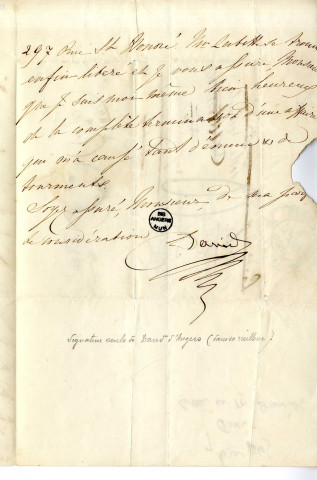 297 Rue St Honoré Mr se trouve
enfin libéré et je vous assure Monsieur
que je suis moi même bien heureux
de la complète d'une affaire
qui m'a causé tant d'ennuie et de
tourments.
Soyez assuré, Monsieur, de ma
considération
David
BIB
ANGERS
MUN
Signature seule de David d'Angers